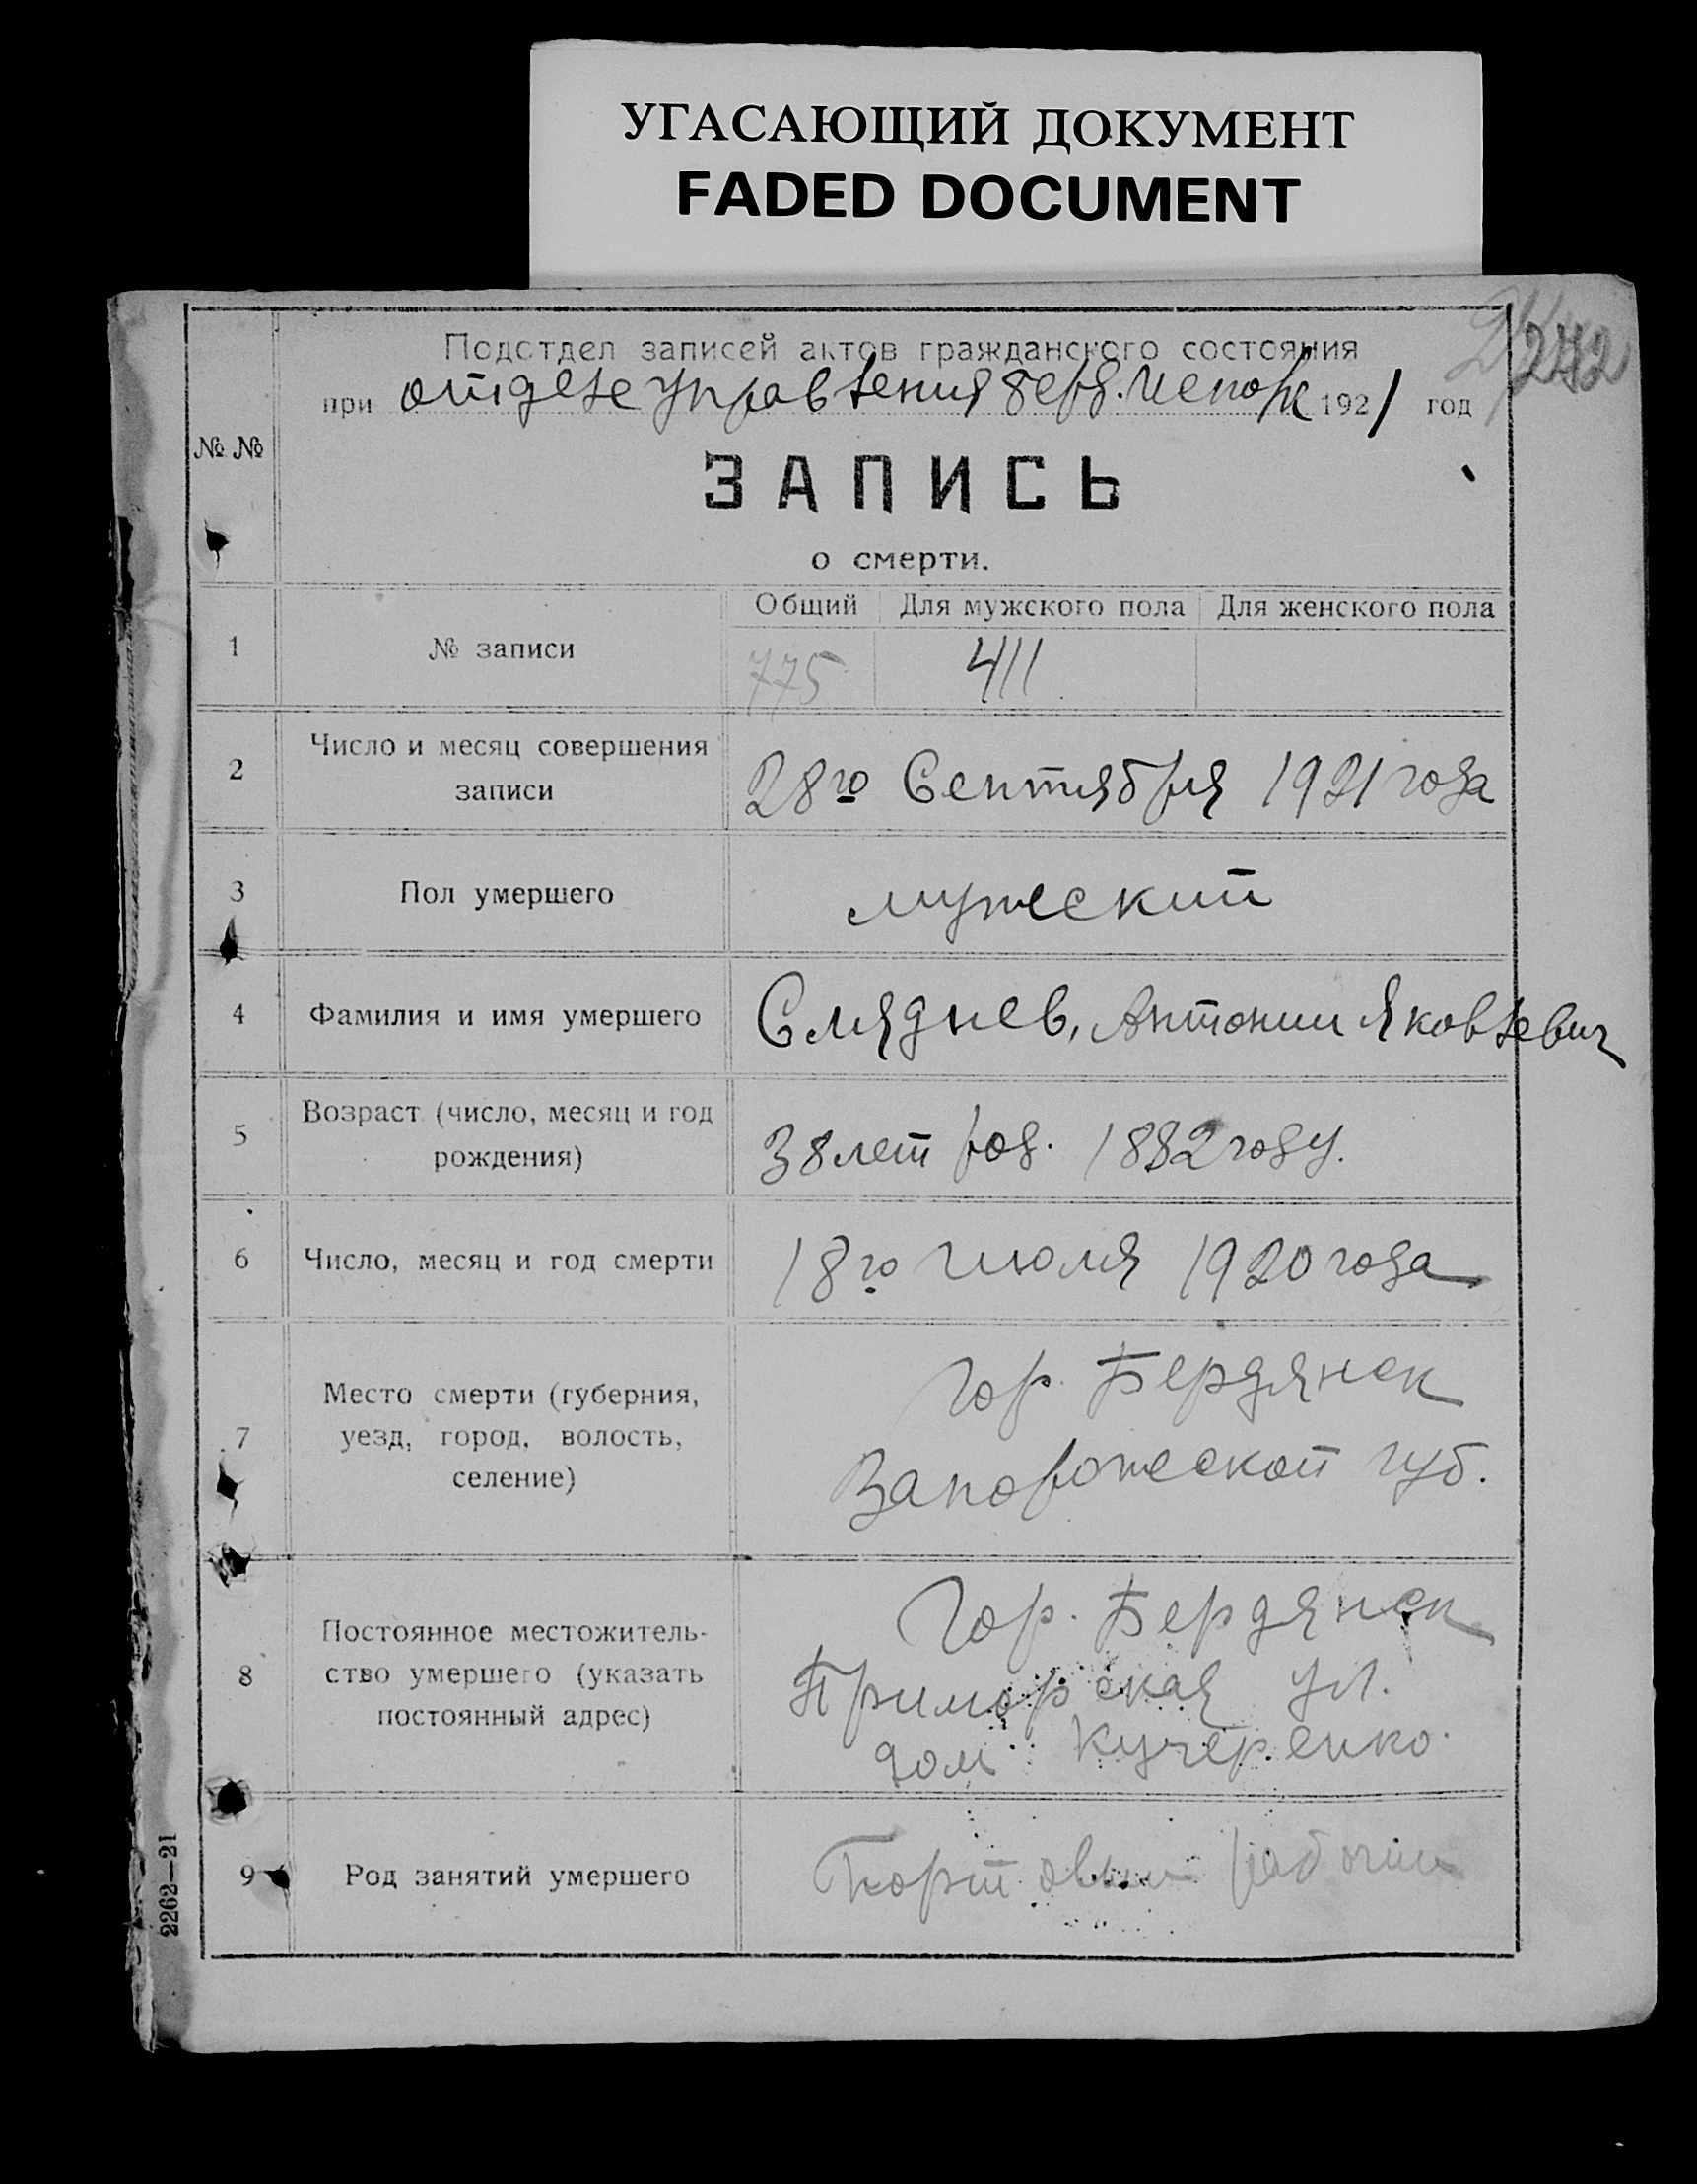 УГАСАЮЩИЙ ДОКУМЕНТ
FADED DOCUMENT
242
Подотдел записей актов гражданского состояния
при отделе управления Берд. Исполк 1921 год
№ №
ЗАПИСЬ
о смерти.
Общий Для мужского пола Для женского пола
1 № записи 775 411
2 Число и месяц совершения
записи
28го Сентября 1921 года
3 Пол умершего мужеский
4 Фамилия и имя умершего Смяднев, Антоний Яковлевич
5 Возраст (число, месяц и год
рождения)
38 лет род. 1882 году.
6 Число, месяц и год смерти 18го Июля 1920 года
7 Место смерти (губерния,
уезд, город, волость,
селение)
Гор. Бердянск
Запорожской губ.
8 Постоянное местожитель-
ство умершего (указать
постоянный адрес)
Гор. Бердянск
Приморская ул.
дом Кучеренко.
9 Род занятий умершего Портовый рабочий
2262—21